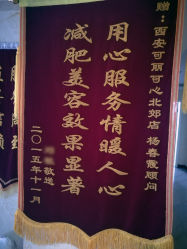 赠：西安可丽可心北郊店 杨春霞顾问
用心服务情暖人心
减肥美容效果显著
敬送
二〇一五年十一月